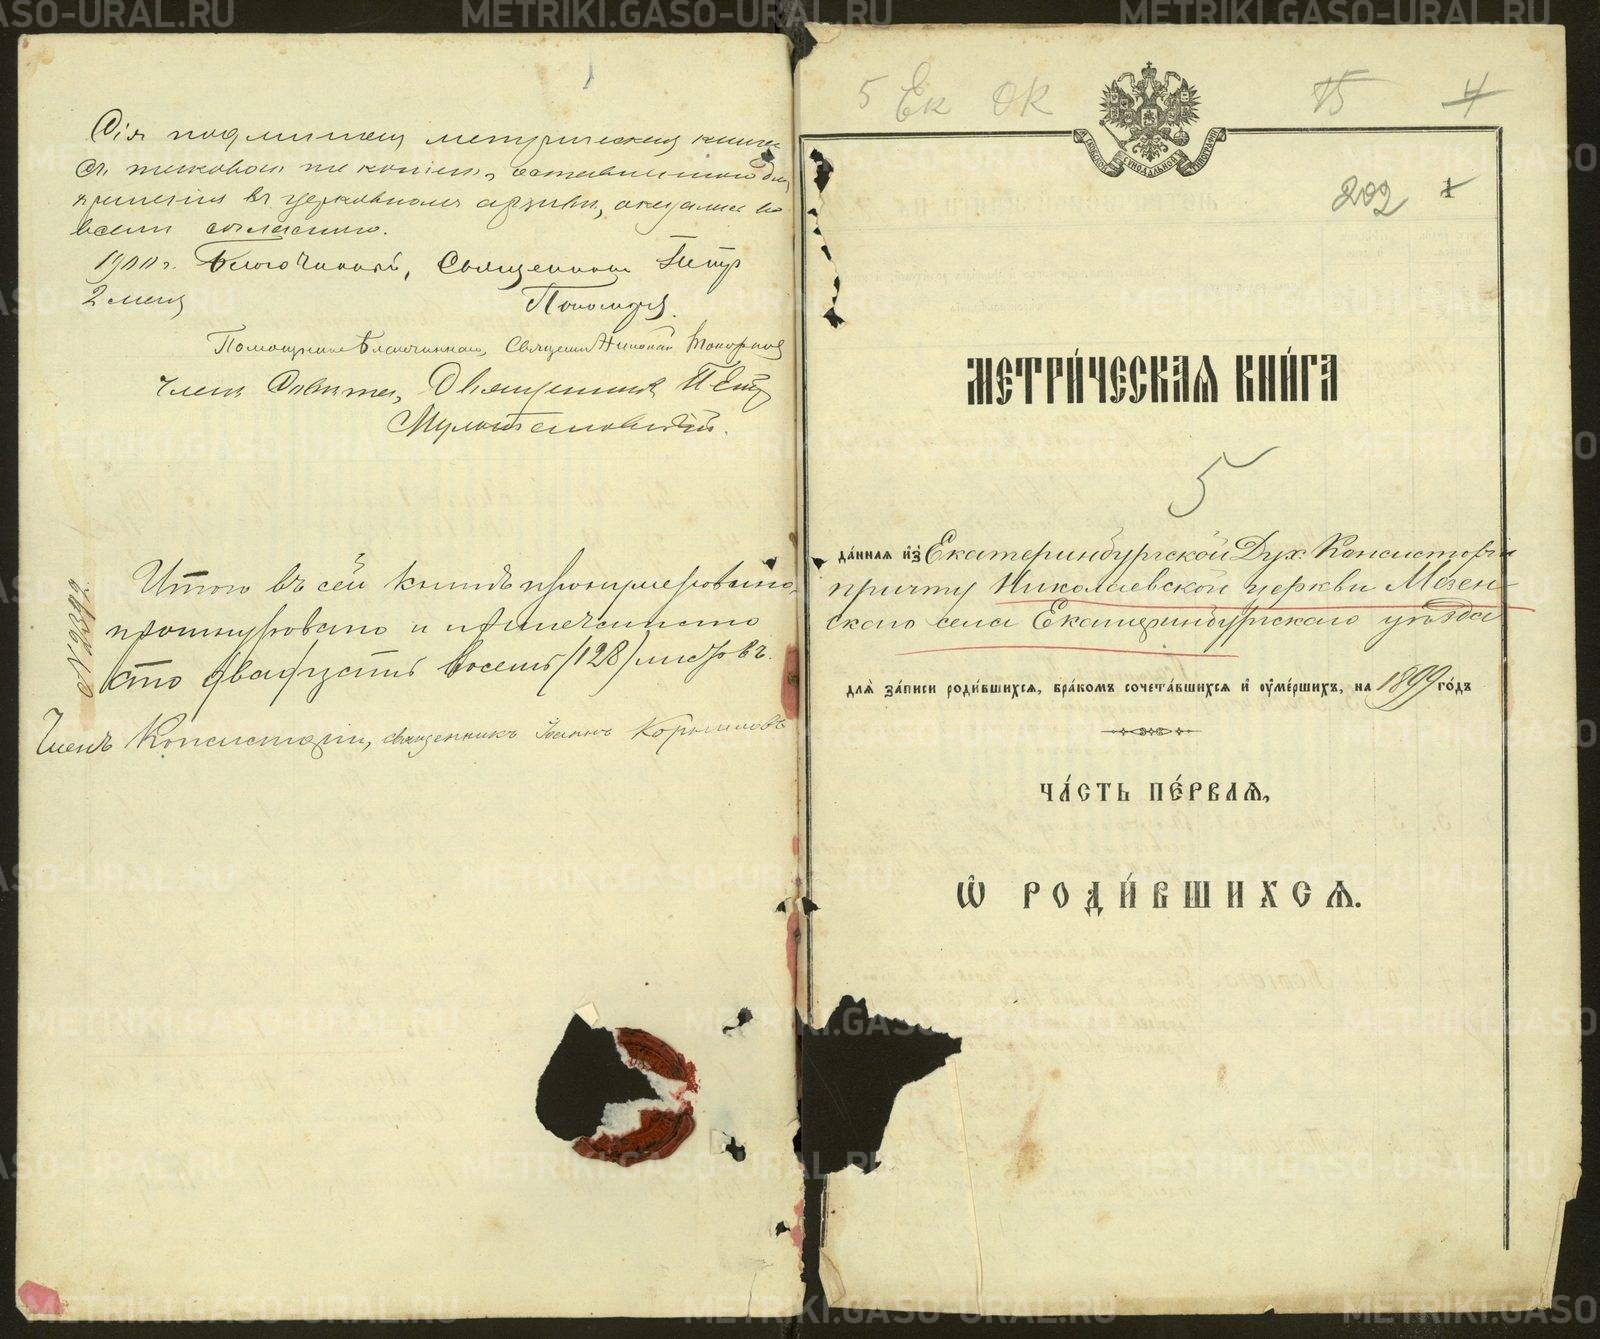 Сія подлинная метрическая книга
съ таковою же копіею, оставленною для
храненія въ церковномъ архивѣ, оказалась во
всемъ согласною.
1900 г. Благочинный, Священникъ Петръ
2 мая Пономарев.
Помощникъ Благочиннаго, Священникъ Николай
Членъ Совѣта, Священникъ Петръ
Итого въ сей книгѣ пронумеровано,
прошнуровано и припечатано
сто двадцать восемь (128) листовъ.
Членъ Консисторіи, священникъ Іоаннъ
5 Ек ОК 15 4
СИНОДАЛЬНОЙ ТИПОГРАФІИ
202 1
МЕТРИ́ЧЕСКАЯ КНИ́ГА
5
да́нная изъ Екатеринбургской Дух. Консисторіи
причту Николаевской церкви Мезен-
скаго села Екатеринбургскаго уѣзда
для за́писи роди́вшихся, бра́комъ сочета́вшихся и оуме́ршихъ, на 1899 го́дъ
ЧА́СТЬ ПЕ́РВАЯ,
Ѿ РОДИ́ВШИХСЯ.
METRIKI.GASO-URAL.RU